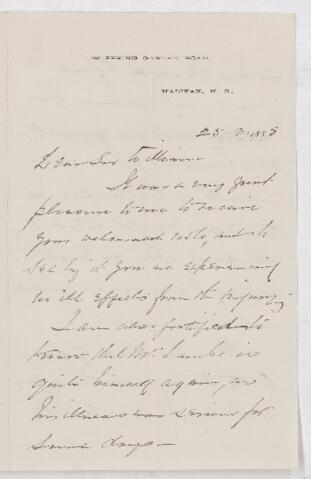 SPRING GARDEN ROAD
HALIFAX, N. S.
Dear Sir
It was a very great
pleasure to me to receive
your welcome note, and to
see by it you are experiencing
no ill effects from the
I am also gratified to
know that Mr. is
quite himself again, as
his illness was serious for
some days —